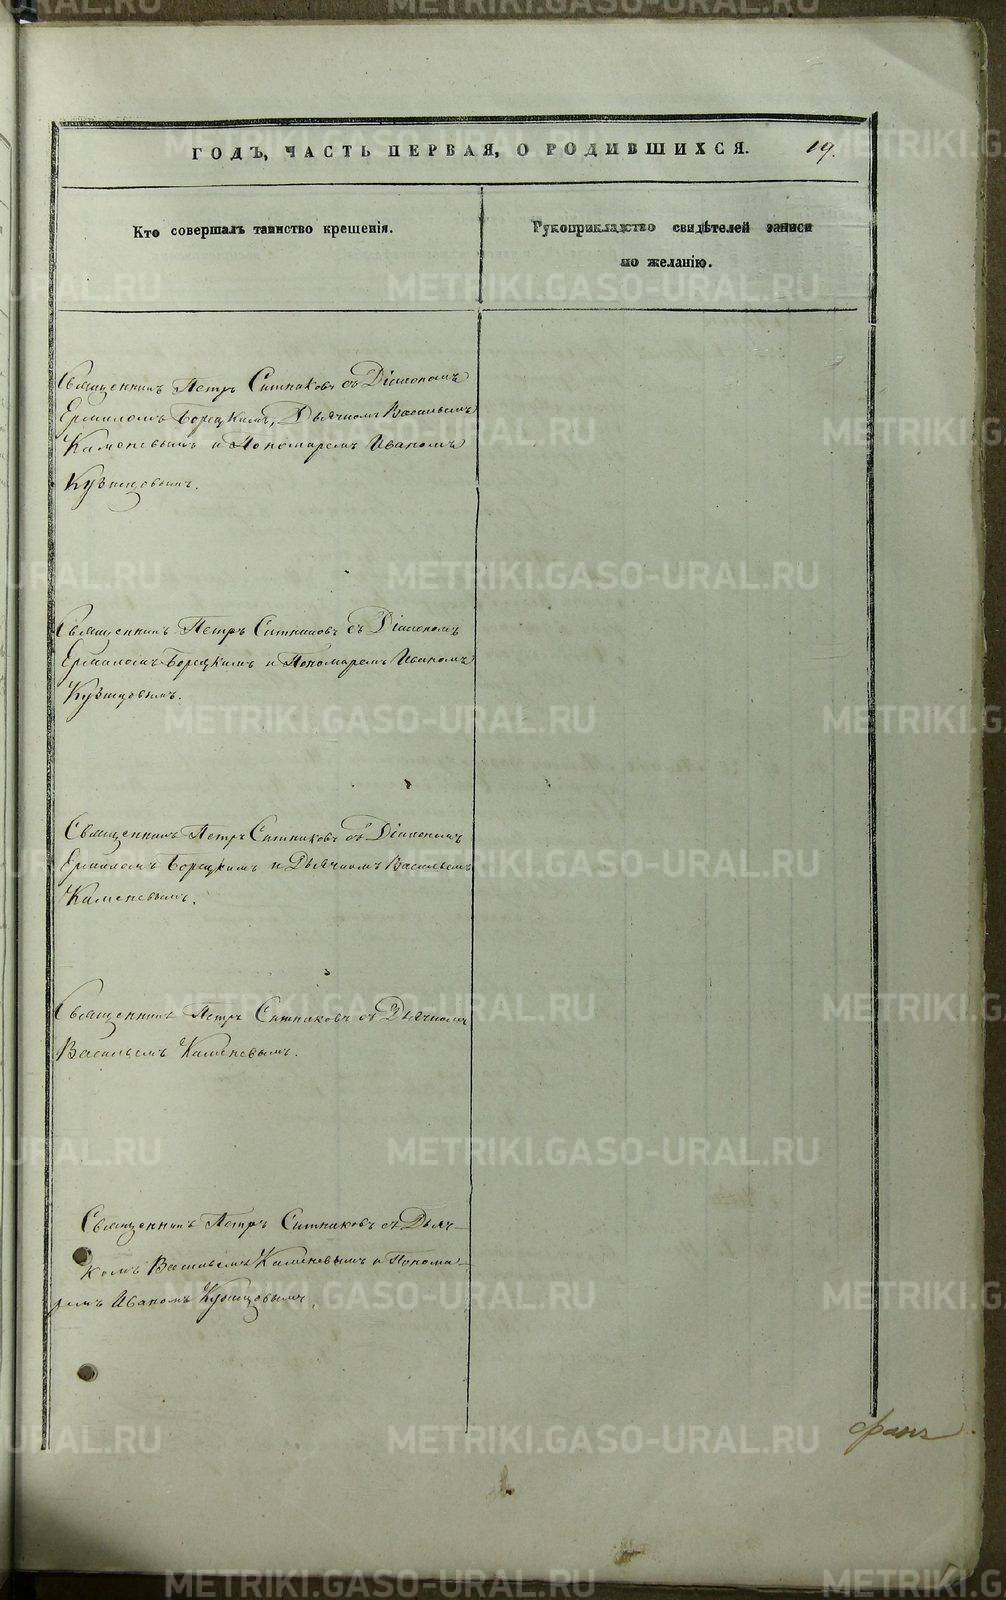 ГОДЪ, ЧАСТЬ ПЕРВАЯ, О РОДИВШИХСЯ. 19.
Кто совершалъ таинство крещенія.
Рукоприкладство свидѣтелей записи
по желанію.
Священникъ Петръ Ситниковъ съ Діакономъ
Ермиломъ Борецкимъ, Дьячкомъ Васильемъ
Каменевымъ и Пономаремъ Иваномъ
Кузнецовымъ.
Священникъ Петръ Ситниковъ съ Діакономъ
Ермиломъ Борецкимъ и Пономаремъ Иваномъ
Кузнецовымъ.
Священникъ Петръ Ситниковъ съ Діакономъ
Ермиломъ Борецкимъ и Дьячкомъ Васильемъ
Каменевымъ.
Священникъ Петръ Ситниковъ съ Дьячкомъ
Васильемъ Каменевымъ.
Священникъ Петръ Ситниковъ съ Дьяч-
комъ Васильемъ Каменевымъ и Понома-
ремъ Иваномъ Кузнецовымъ.
METRIKI.GASO-URAL.RU